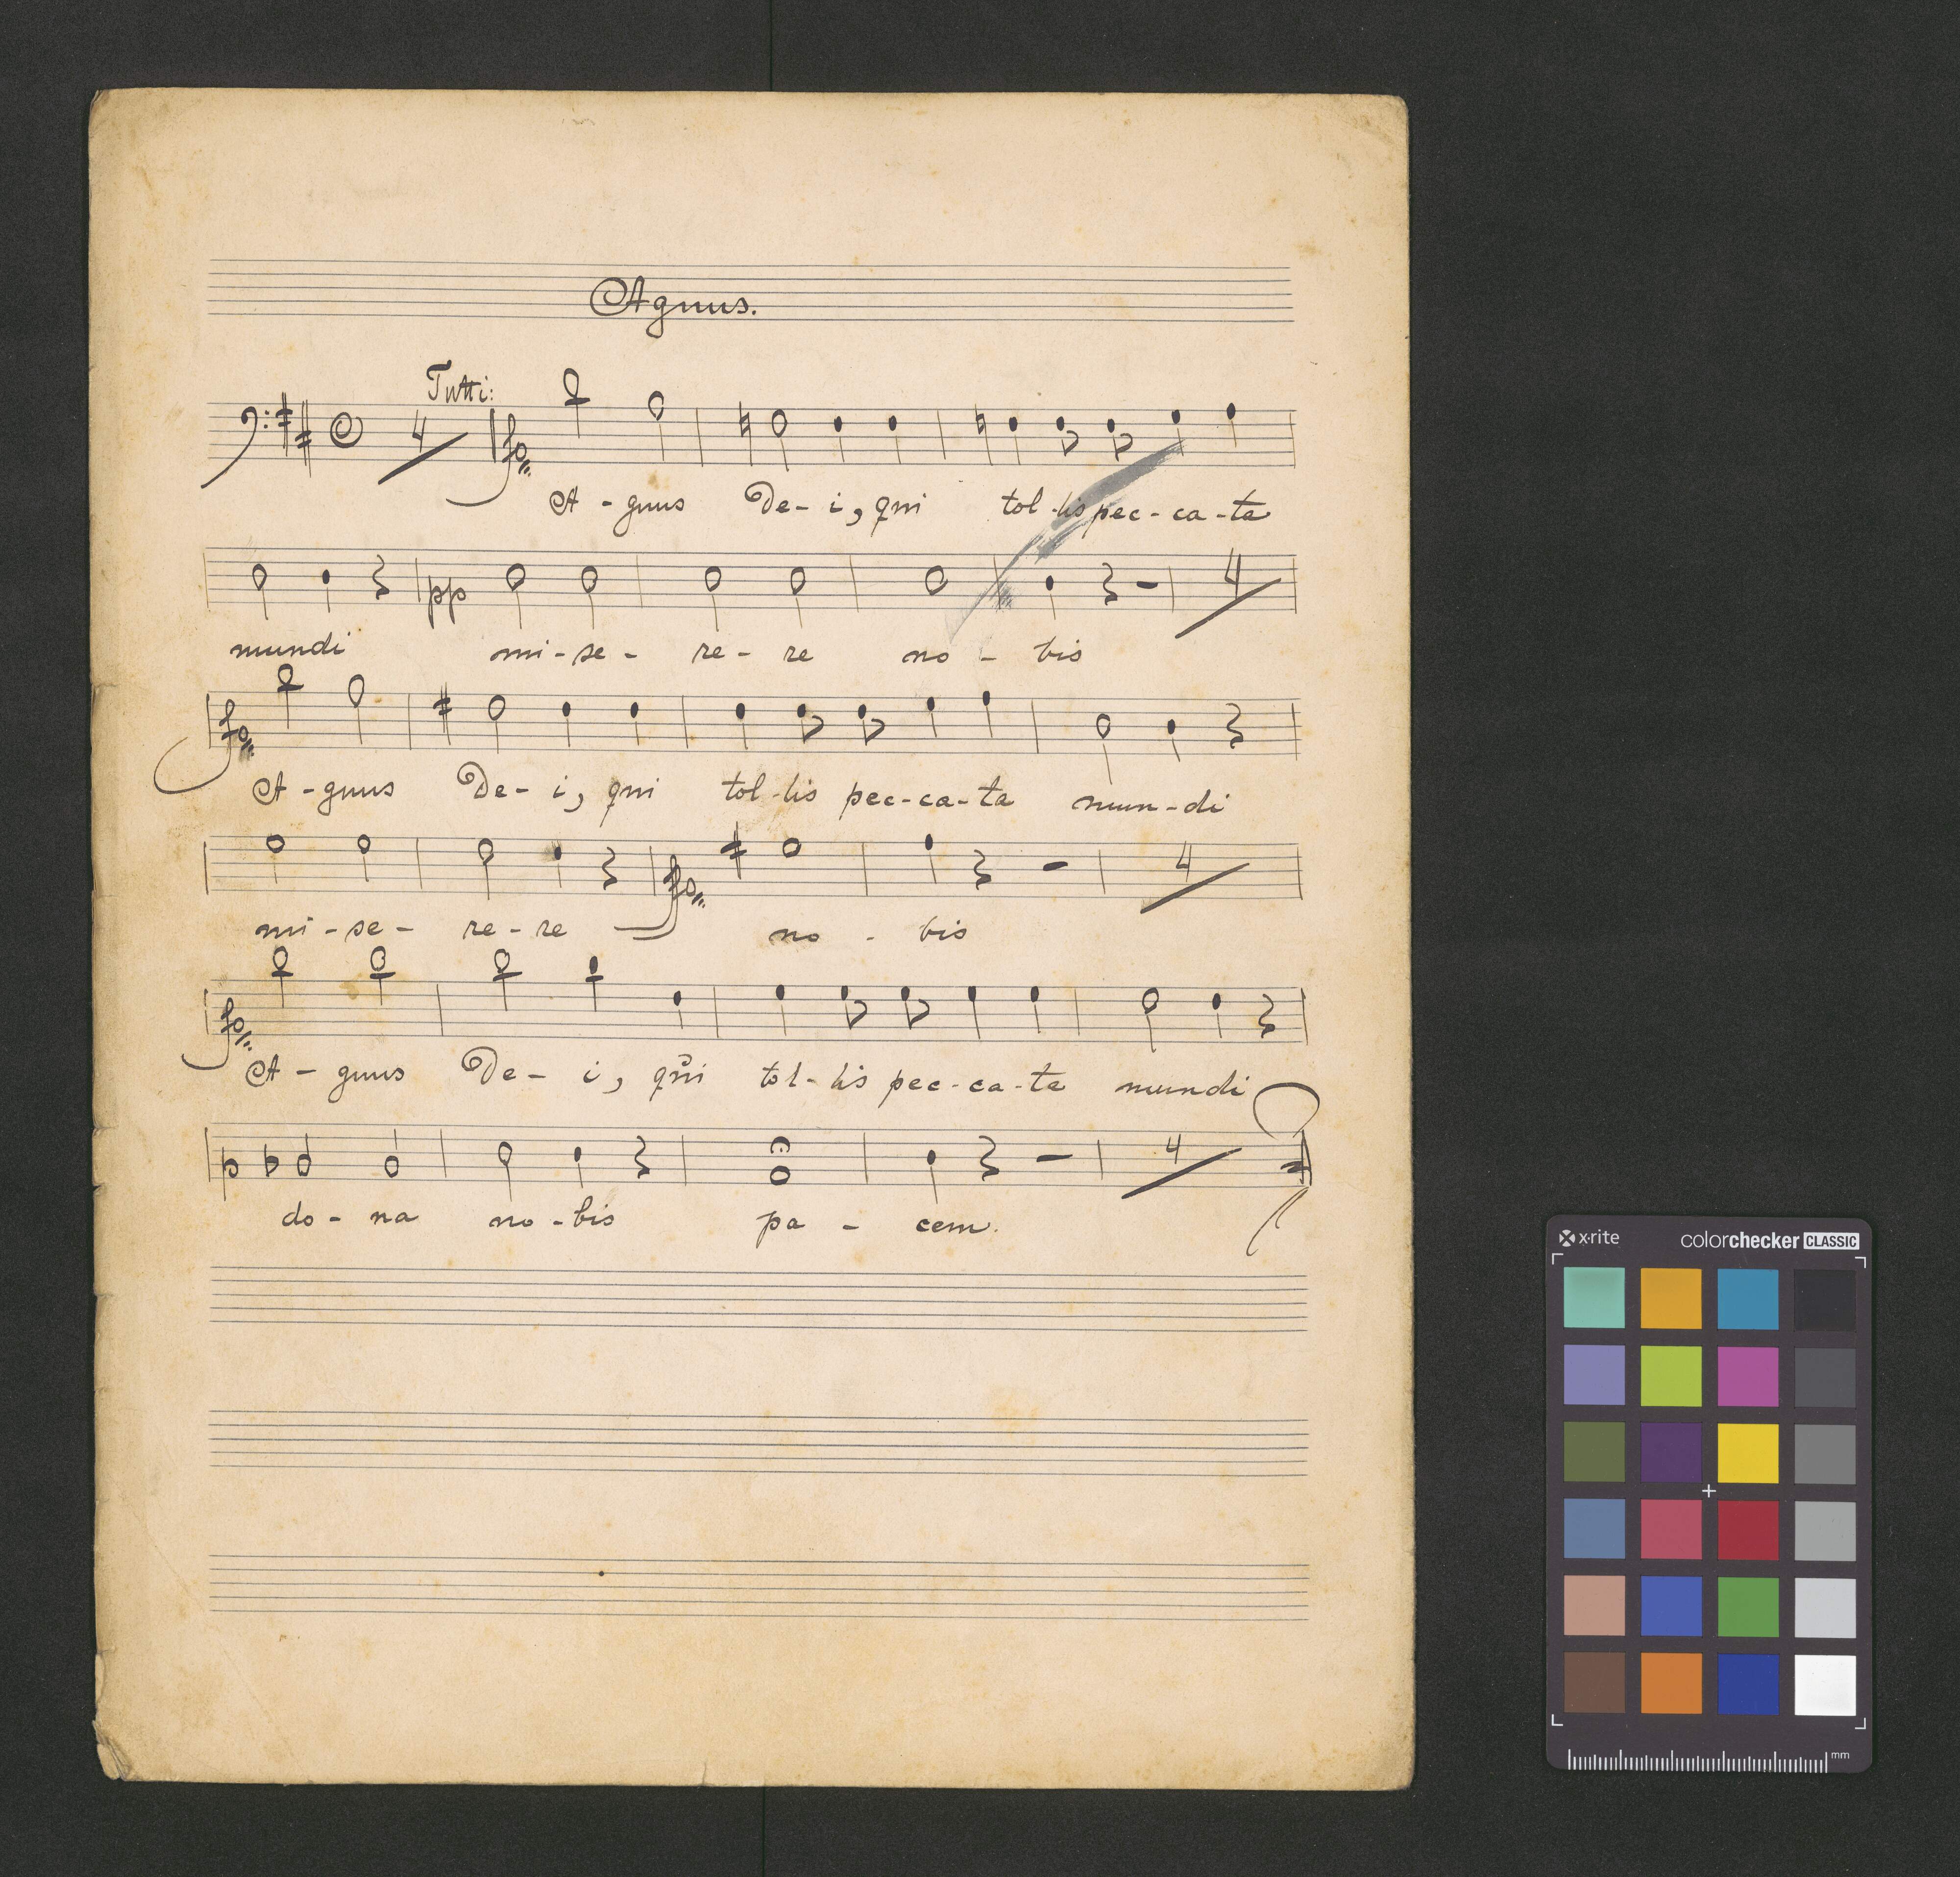 Agnus.
Tutti:
4 fo
A - gnus De - i, qui tol - lis pec - ca - ta
pp 4
mundi mi - se - re - re no - bis
fo
A - gnus De - i, qui tol - lis pec - ca - ta mun - di
ffo 4
mi - se - re - re no - bis
fo
A - gnus De - i, qui tol - lis pec - ca - ta mundi
p 4
do - na no - bis pa - cem.
x·rite colorchecker CLASSIC
mm